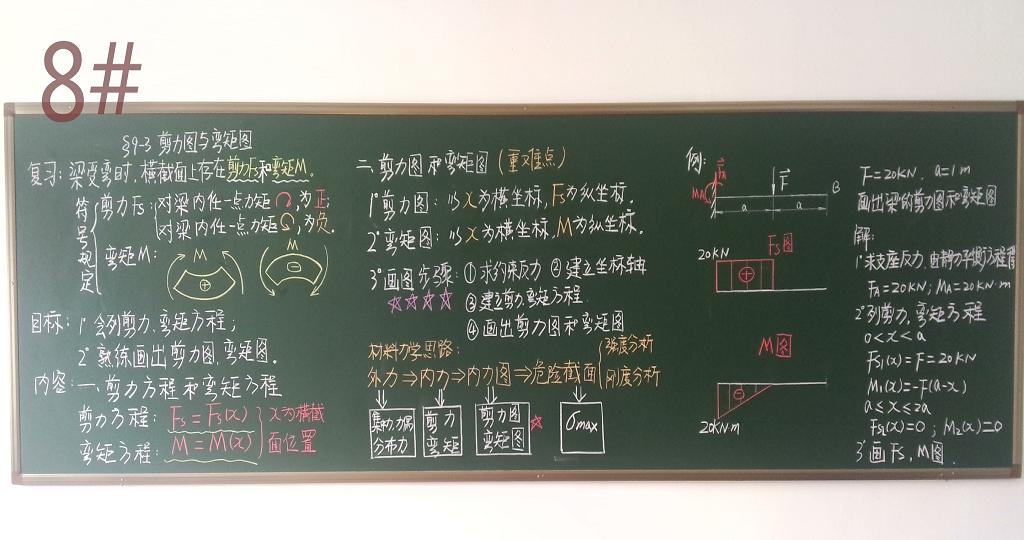 8#
§9-3 剪力图与弯矩图
复习: 梁受弯时,横截面上存在剪力Fs和弯矩M.
符号规定
剪力Fs: 对梁内任一点力矩 为正;
对梁内任一点力矩 为负.
弯矩M:
M
⊕
M
⊖
目标: 1°会列剪力、弯矩方程;
2°熟练画出剪力图、弯矩图.
内容: 一、剪力方程和弯矩方程
剪力方程: Fs=Fs(x)
弯矩方程: M=M(x)
x为横截
面位置
二、剪力图和弯矩图(重、难点)
1°剪力图: 以x为横坐标,Fs为纵坐标.
2°弯矩图: 以x为横坐标,M为纵坐标.
3°画图步骤: ①求约束反力 ②建立坐标轴
☆☆☆☆ ③建立剪力、弯矩方程
④画出剪力图和弯矩图
材料力学思路:
外力⇒内力⇒内力图⇒危险截面
强度分析
刚度分析
集中力,力偶
分布力
剪力
弯矩
剪力图
弯矩图
☆
σmax
例:
FA
MA
F
B
a
a
20KN
Fs图
⊕
M图
⊖
20KN·m
F=20KN, a=1m
画出梁的剪力图和弯矩图
解:
1°求支座反力,由静力平衡方程得
FA=20KN; MA=20KN·m
2°列剪力、弯矩方程
0<x<a
Fs1(x)=F=20KN
M1(x)=-F(a-x)
a≤x≤2a
Fs2(x)=0; M2(x)=0
3°画Fs、M图.